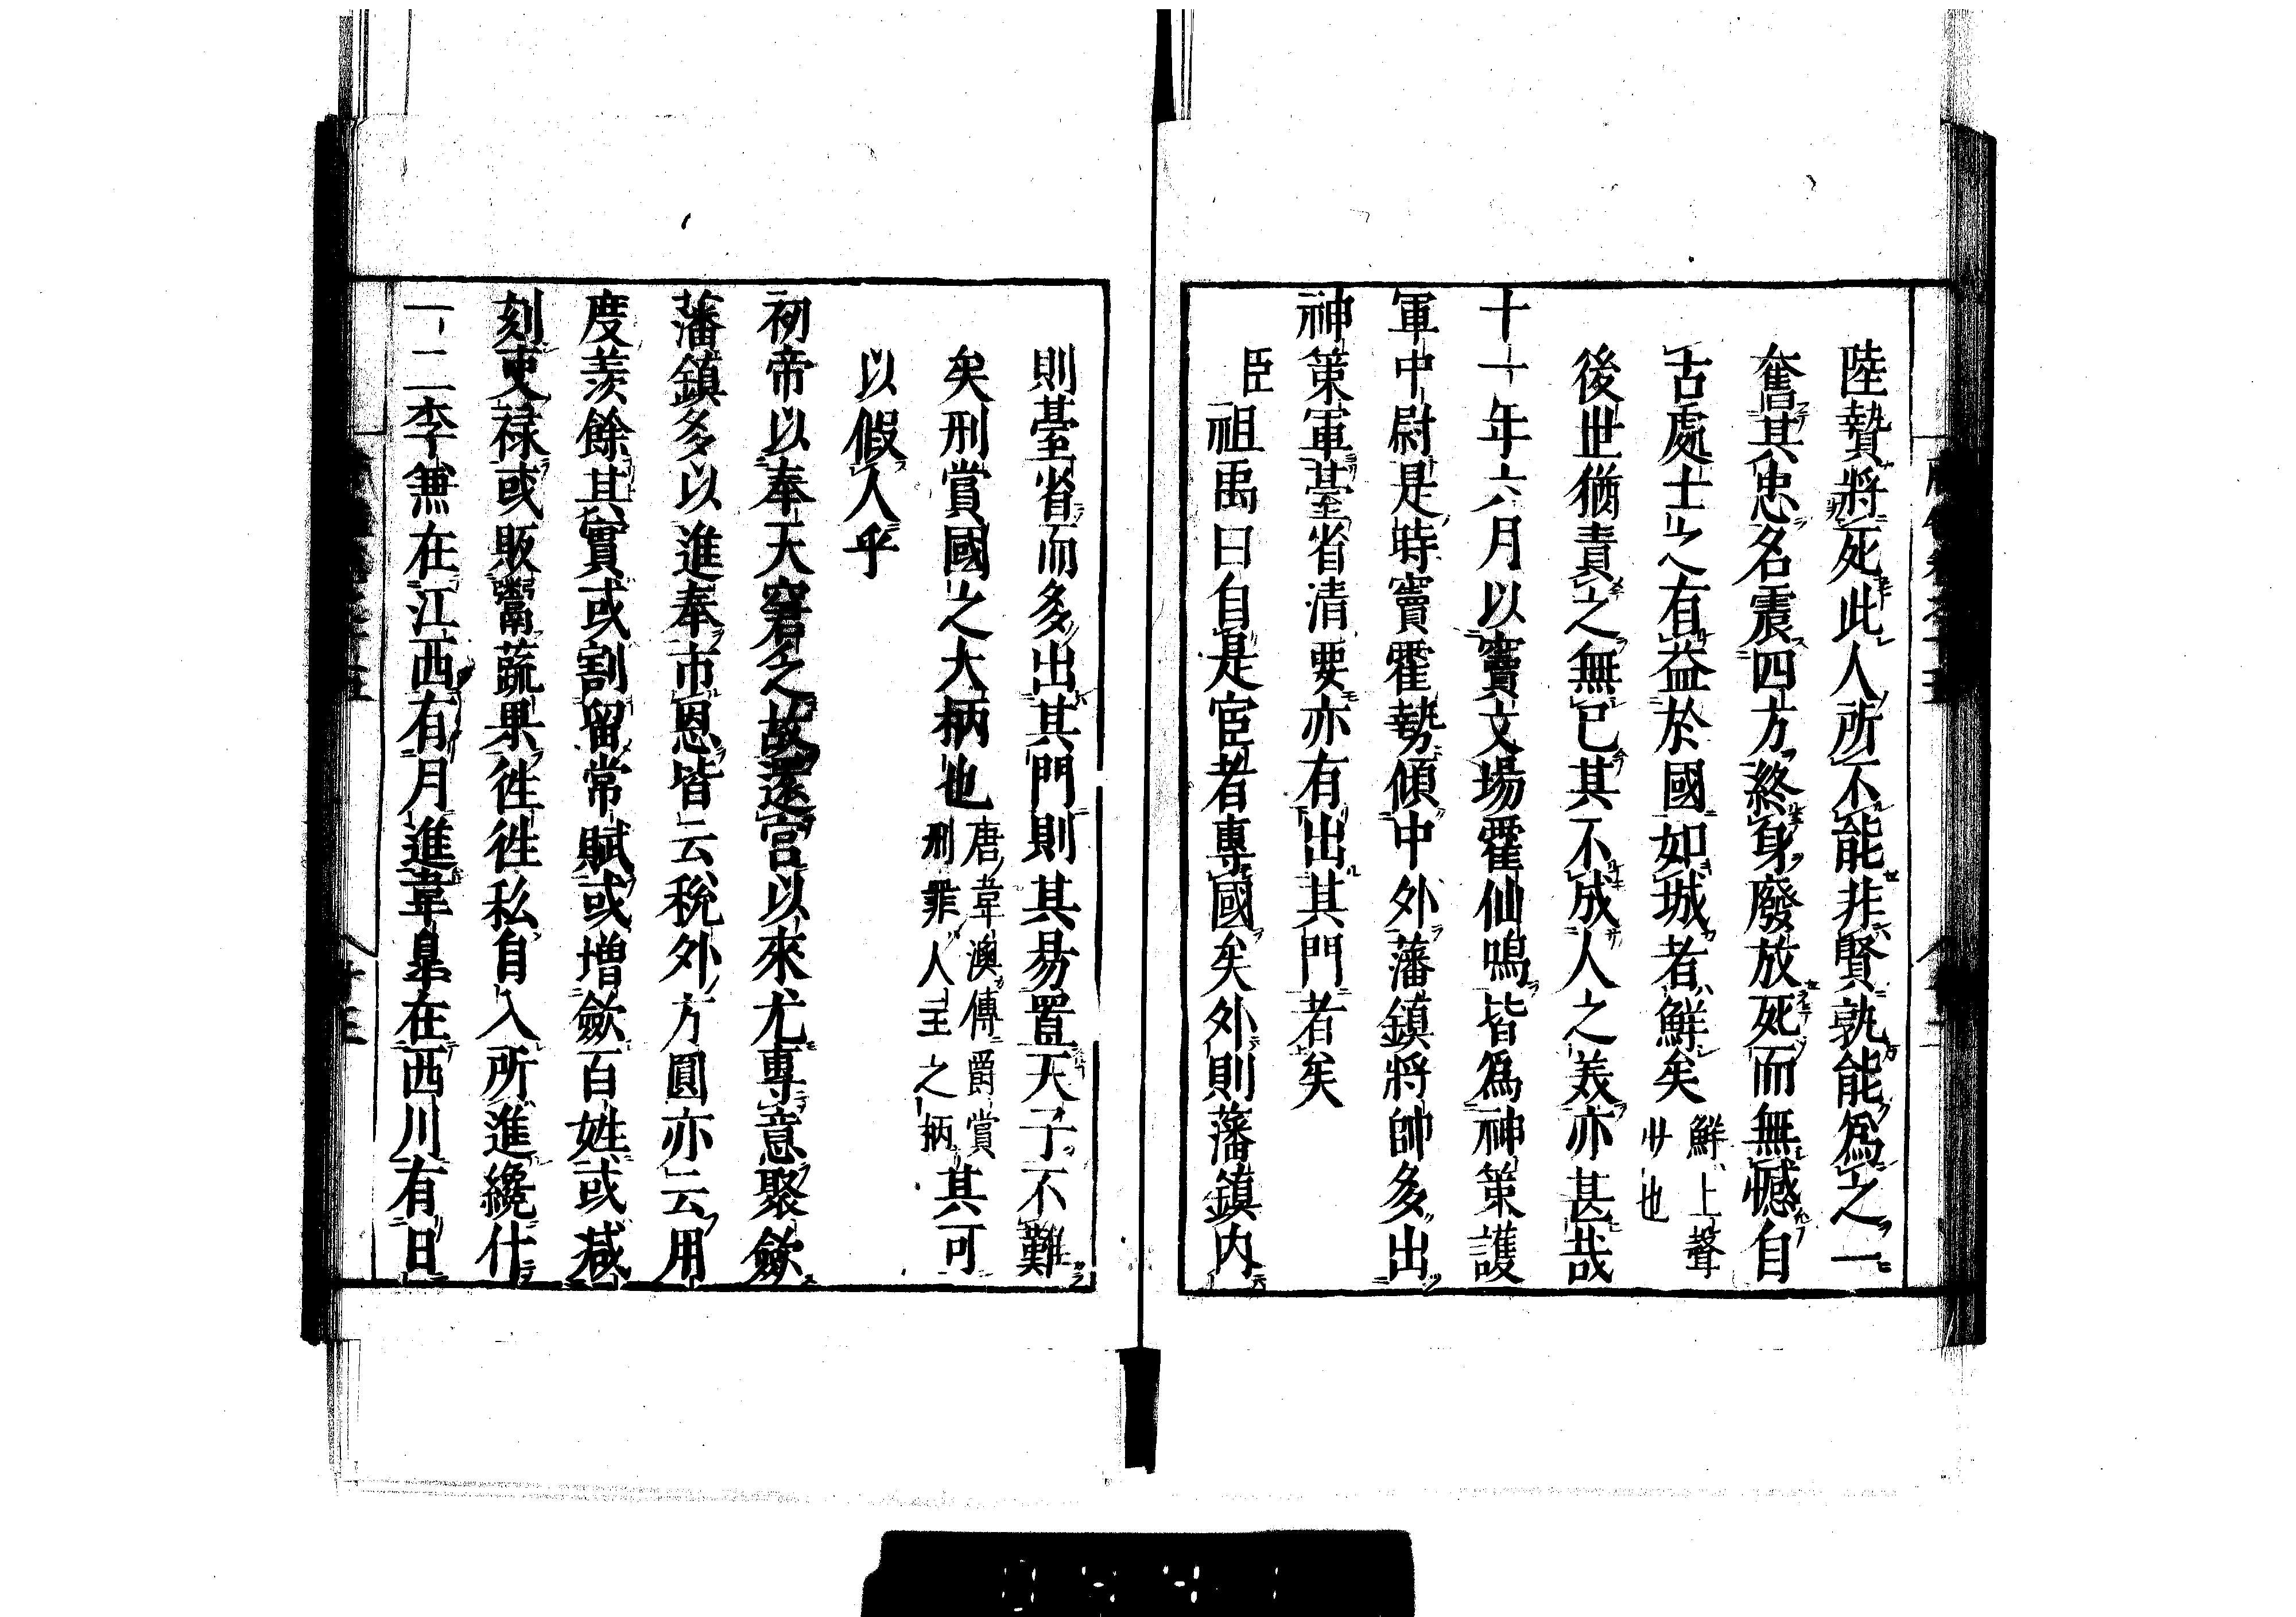 陸贄將死此人所不能非賢孰能爲之一
奮其忠名震四方終身廢放死而無憾自
古處士之有益於國如城者鮮矣鮮上聲少也
後世猶責之無已其不成人之美亦甚哉
十一年六月以竇文場霍仙鳴皆爲神策護
軍中尉是時竇霍勢傾中外藩鎮將帥多出
神策軍臺省清要亦有出其門者矣
臣祖禹曰自是宦者專國矣外則藩鎮内
則臺省而多出其門則其易置天子不難
矣刑賞國之大柄也唐韋澳傳爵賞刑罪人主之柄其可
以假人乎
初帝以奉天窘乏故還宮以來尤專意聚歛
藩鎮多以進奉市恩皆云税外方圓亦云用
度羨餘其實或割留常賦或増歛百姓或减
刻吏祿或販鬻蔬果徃徃私自入所進纔什
一二李兼在江西有月進韋皐在西川有日